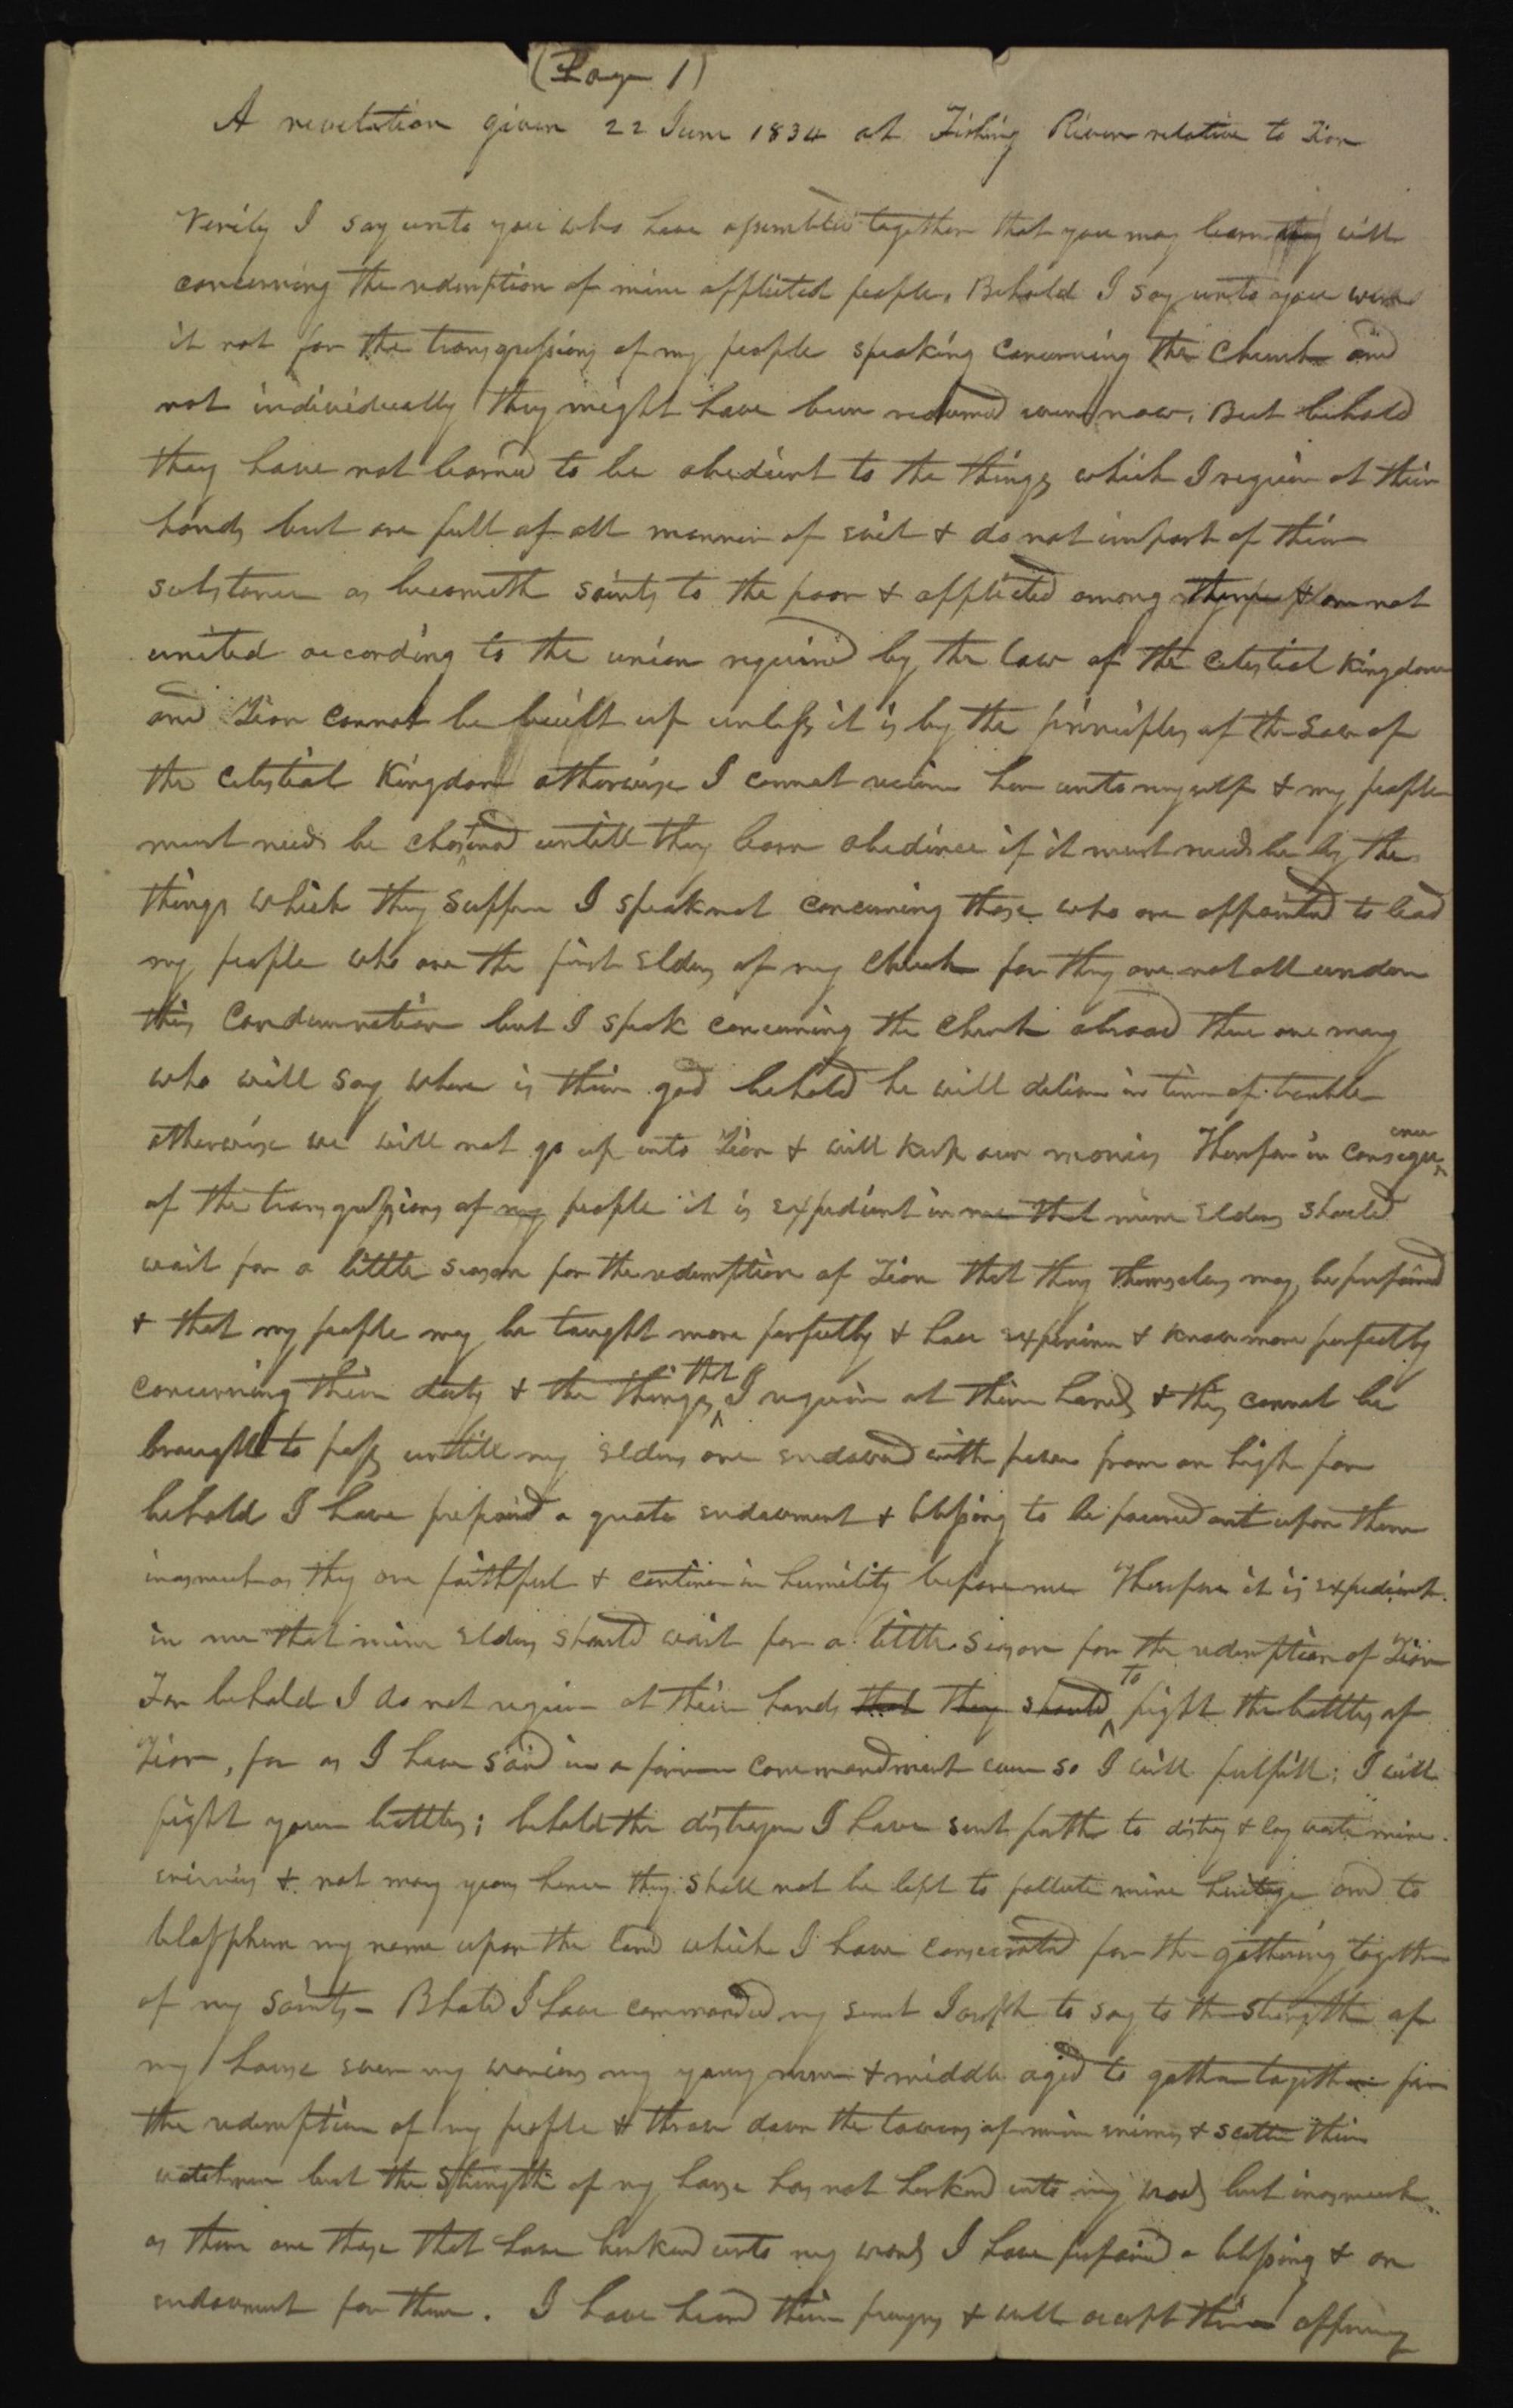 (Page 1)
A revelation given 22 June 1834 at Fishing River relative to Zion
Verily I say unto you who have assembled together that you may learn my will
concerning the redemption of mine afflicted people. Behold I say unto you were
it not for the transgressions of my people speaking concerning the church and
not individually they might have been redeemed even now. But behold
they have not learned to be obedient to the things which I require at their
hands but are full of all manner of evil & do not impart of their
substance as becometh saints to the poor & afflicted among them & are not
united according to the union required by the law of the celestial kingdom
and Zion cannot be built up unless it is by the principles of the Law of
the celestial Kingdom otherwise I cannot recieve her unto myself & my people
must needs be chastened untill they learn obedince if it must needs be by the
things which they suffer I speak not concerning those who are appointed to lead
my people who are the first Elders of my church for they are not all under
this Condemnation but I speak concerning the church abroad there are many
who will say where is their god behold he will deliver in time of trouble
otherwise we will not go up unto Zion & will keep our monies Therefore in consequence
of the transgressions of my people it is expedient in me that mine Elders should
wait for a little season for the redemption of Zion that they themselves may be prepared
& that my people may be taught more perfectly & have experience & know more perfectly
concerning their duty & the things that I require at their hands & this cannot be
brought to pass untill my Elders are endowed with power from on high for
behold I have prepared a greate endowment & blessing to be poured out upon them
inasmuch as they are faithful & continue in humility before me Therefore it is expedient
in me that mine Elders should wait for a little season for the redemption of Zion
For behold I do not require at their hands that they should to fight the battles of
Zion, for as I have said in a former commandment even so I will fulfill; I will
fight your battles; behold the distroyer I have sent forth to distroy & lay waste mine
enimies & not many years hence they shall not be left to pollute mine heritage and to
blaspheme my name upon the land which I have consecrated for the gathering together
of my saints – Bhold I have commanded my servt Joseph to say to the strength of
my house even my warriors my young men & middle aged to gather together for
the redemption of my people & throw down the towers of mine enimies & scatter their
watchmen but the strength of my house has not herkned unto my words but inasmuch
as there are those that have herkned unto my words I have prepared a blessing & an
endowment for them. I have heard their prayers & will accept their offering